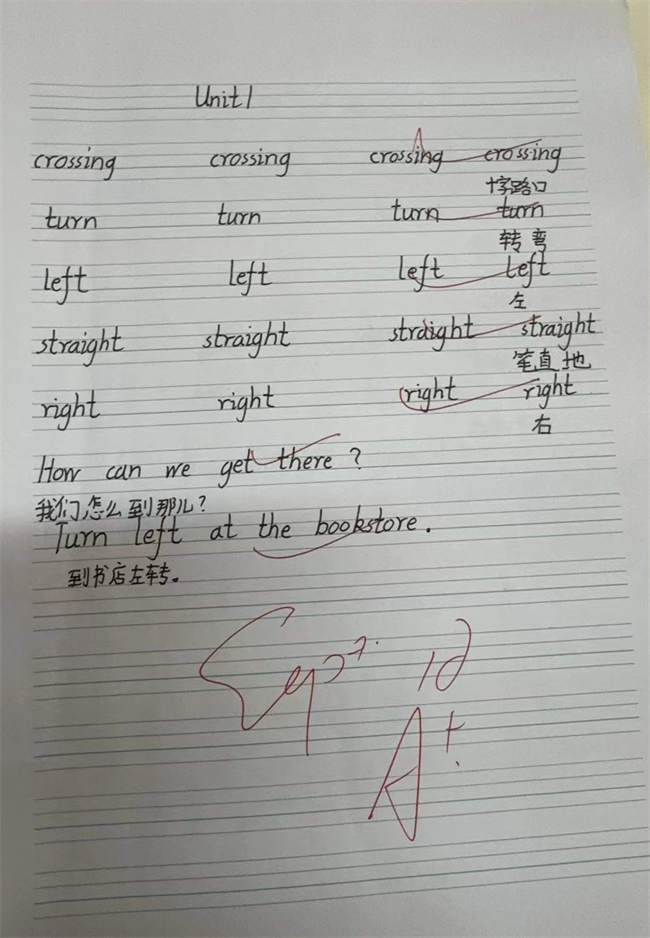 Unit 1
crossing crossing crossing crossing
十字路口
turn turn turn turn
转弯
left left left left
左
straight straight straight straight
笔直地
right right right right
右
How can we get there?
我们怎么到那儿?
Turn left at the bookstore.
到书店左转。
Sep
A+